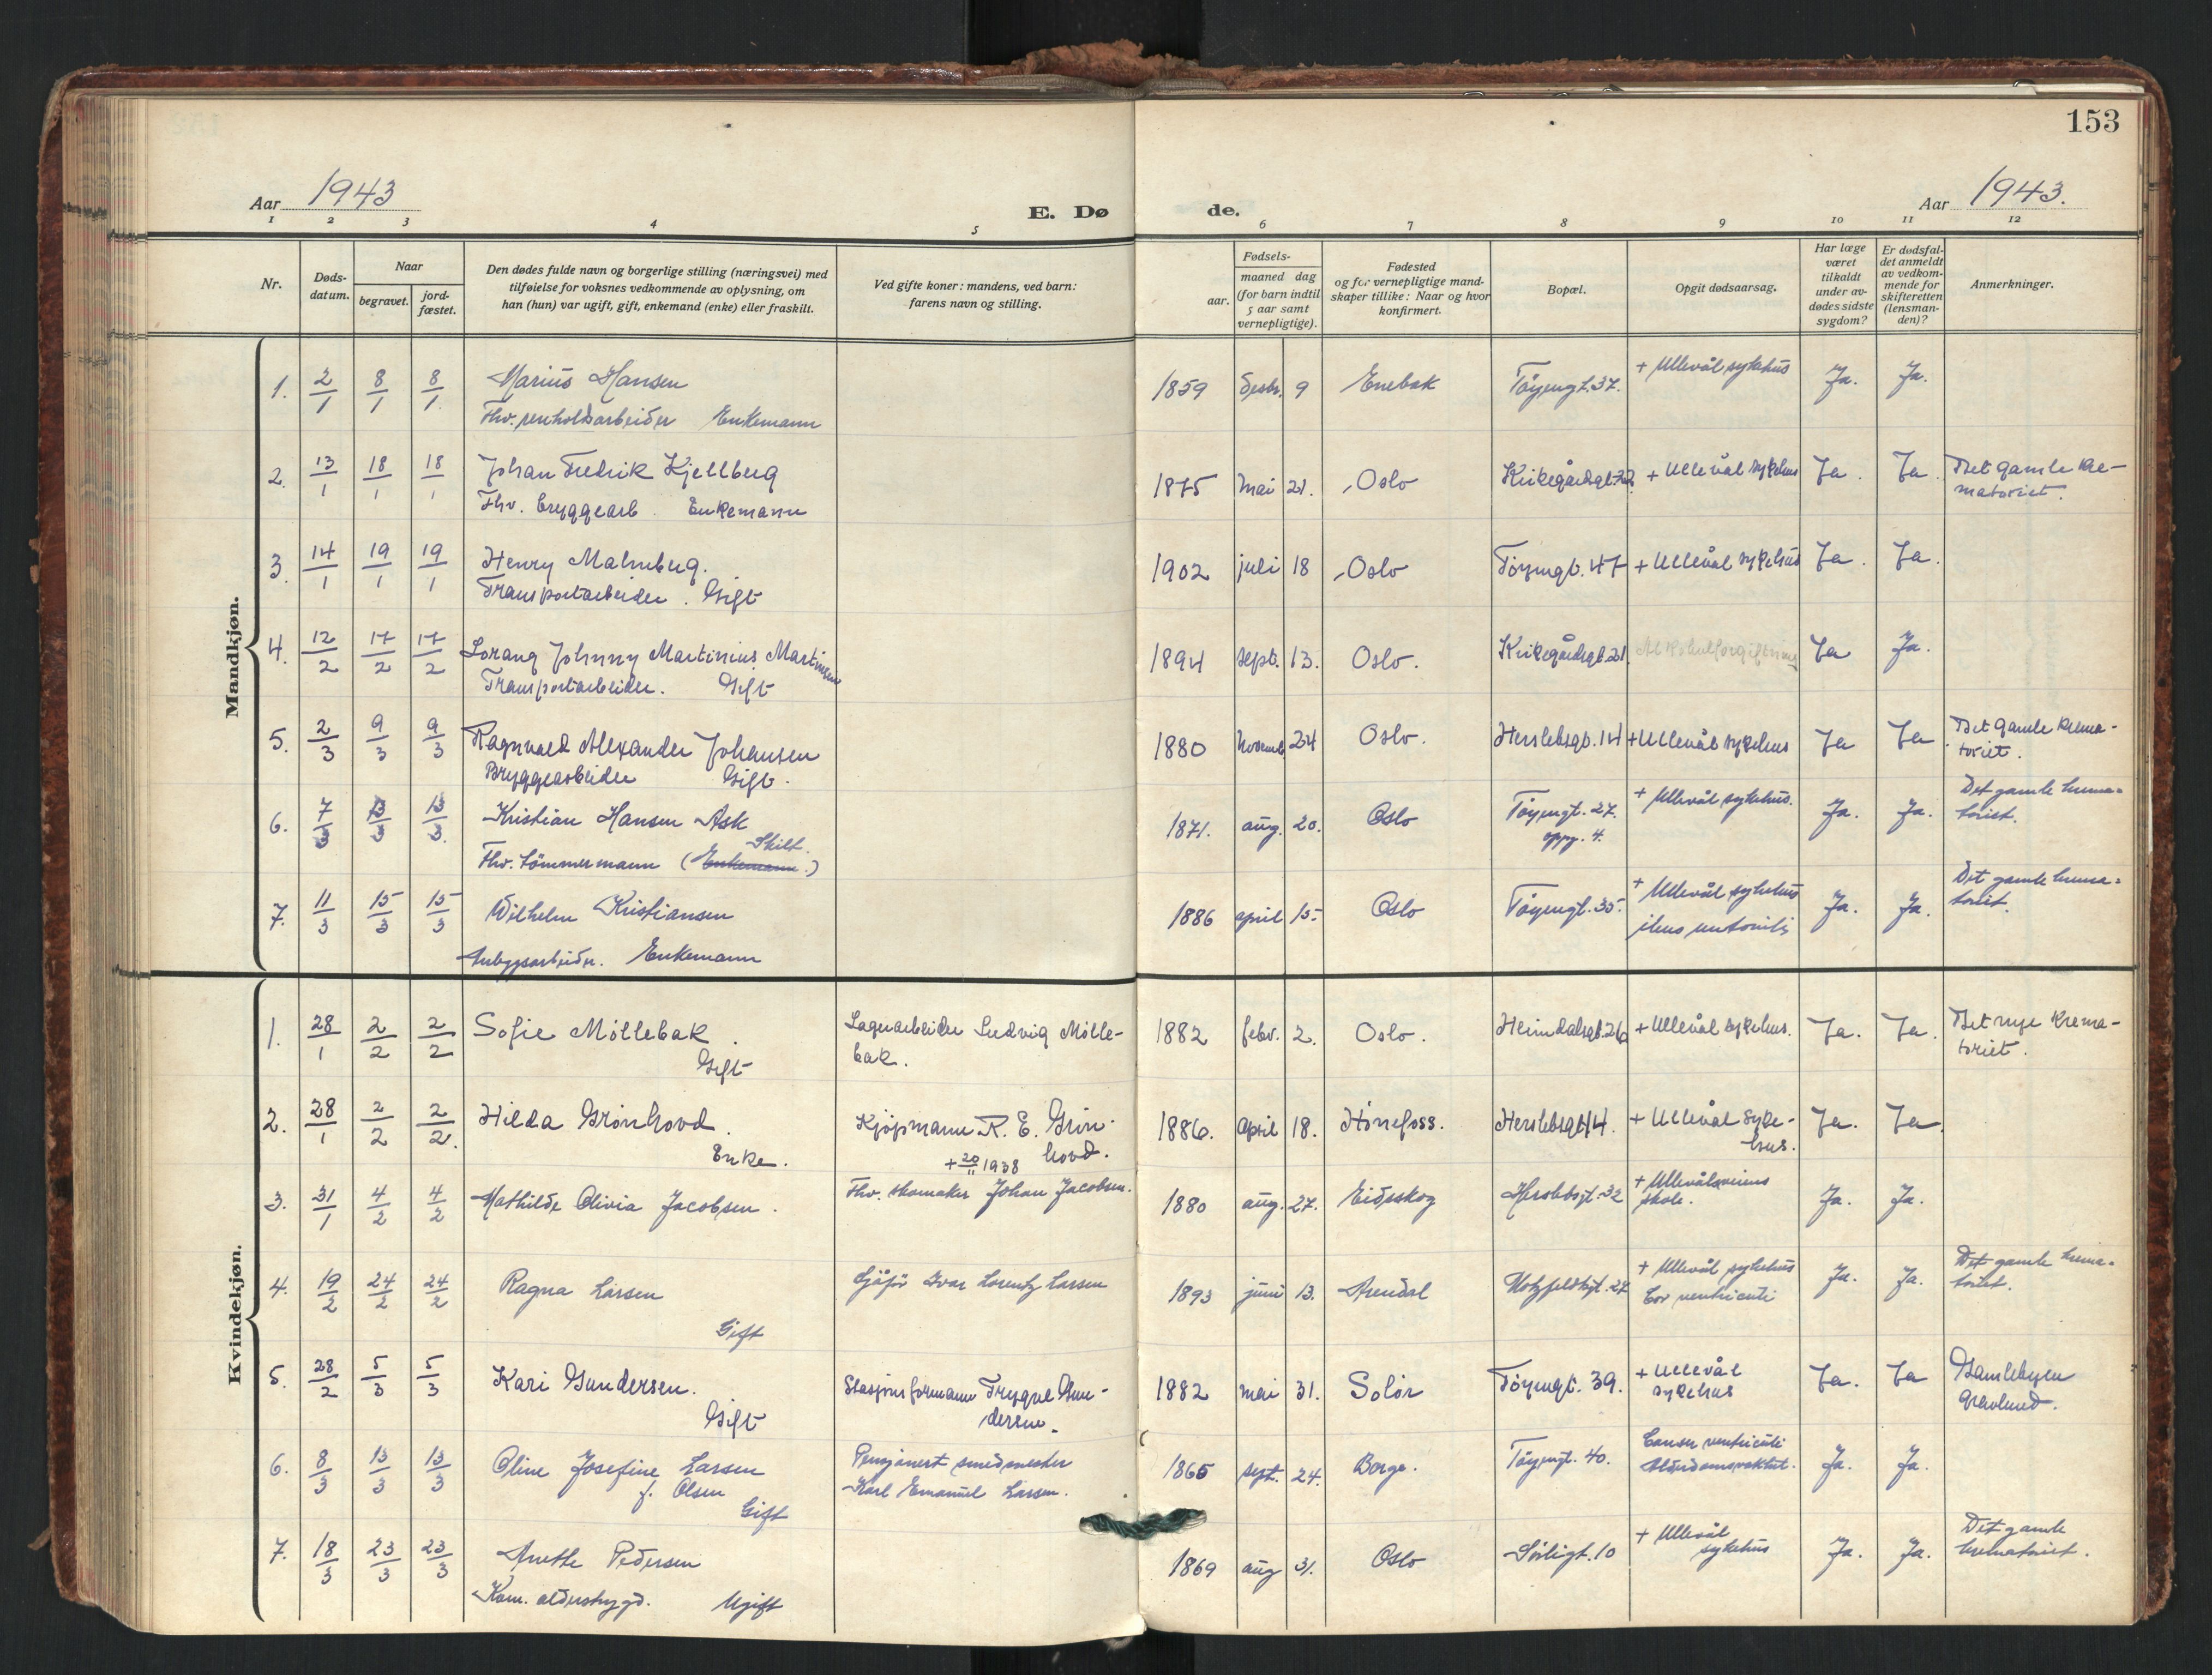 153
Aar 1943
E. Dø
de.
Aar 1943.
1 2 3 4 5 6 7 8 9 10 11 12
Nr.
Døds-
datum.
Naar
begravet.
jord-
fæstet.
Den dødes fulde navn og borgerlige stilling (næringsvei) med
tilføielse for voksnes vedkommende av oplysning, om
han (hun) var ugift, gift, enkemand (enke) eller fraskilt.
Ved gifte koner: mandens, ved barn:
farens navn og stilling.
Fødsels-
aar.
maaned dag
(for barn indtil
5 aar samt
vernepligtige).
Fødested
og for vernepligtige mand-
skaper tillike: Naar og hvor
konfirmert.
Bopæl.
Opgit dødsaarsag.
Har læge
været
tilkaldt
under av-
dødes sidste
sygdom?
Er dødsfal-
det anmeldt
av vedkom-
mende for
skifteretten
(lensman-
den)?
Anmerkninger.
Mandkjøn.
1. 2/1 8/1 8/1 Marius Hansen 1859 Desbr. 9 Enebak Töyengt. 37. + Ullevål sykehus Ja. Ja.
Fhv. renholdsarbeider Enkemann
2. 13/1 18/1 18/1 Johan Fredrik Kjellberg 1875 Mai 21. Oslo Kirkegårdsgt. 22. + Ullevål sykehus Ja. Ja. Det gamle kre-
matoriet.
Fhv. bryggearb. Enkemann
3. 14/1 19/1 19/1 Henry Malmberg. 1902 juli 18 Oslo Töyengt. 47 + Ullevål sykehus Ja. Ja.
Transportarbeider. Gift
4. 12/2 17/2 17/2 Lorang Johnny Martinius Martinsen 1894 sept. 13. Oslo. Kirkegårdsgt. 21. Alkoholforgiftning Ja Ja.
Transportarbeider. Gift
5. 2/3 9/3 9/3 Ragnvald Alexander Johansen 1880 Novemb. 24 Oslo. Herslebsgt. 14 + Ullevål sykehus Ja Ja Det gamle krema-
toriet.
Bryggearbeider Gift.
6. 7/3 13/3 13/3. Kristian Hansen Ask 1871. aug. 20. Oslo Töyengt. 27. + Ullevål sykehus. Ja. Ja. Det gamle krema=
toriet.
oppg. 4.
Skilt.
Fhv. tömmermann (Enkemann.)
7. 11/3 15/3 15/3 Wilhelm Kristiansen 1886 april 15. Oslo Töyengt. 35. + Ullevål sykehus Ja. Ja. Det gamle krema=
toriet.
Anleggsarbeider. Enkemann
Kvindekjøn.
1. 28/1 2/2 2/2 Sofie Möllebak. Lagerarbeider Ludvig Mölle-
bak. 1882 febr. 2. Oslo. Heimdalsgt. 26 + Ullevål sykehus. Ja. Ja. Det nye krema-
toriet.
Gift
2. 28/1 2/2 2/2. Hilda Grönhovd. Kjøpmann R. E. Grön-
hovd. + 20/11 1938 1886. April 18. Hönefoss. Herslebsgt. 14. + Ullevål syke-
hus. Ja. Ja.
Enke.
3. 31/1 4/2 4/2 Mathilde Olivia Jacobsen. Fhv. skomaker Johan Jacobsen. 1880 aug. 27. Eidsskog Herslebsgt. 32 + Ullevålsveiens
skole. Ja. Ja.
4. 19/2 24/2 24/2 Ragna Larsen Sjåför Ivar Lorentz Larsen 1893 juni 13. Arendal Motzfeldtsgt. 27 + Ullevål sykehus Ja. Ja. Det gamle krema-
toriet.
Gift
5. 28/2 5/3 5/3 Kari Gundersen. Stasjonsformann Trygve Gun-
dersen. 1882 mai 31. Solör Töyengt. 39. + Ullevål
sykehus Ja. Ja Gamlebyen
Gravlund.
Gift
6. 8/3 13/3 13/3 Oline Josefine Larsen Pensjonert smedmester
Karl Emanuel Larsen. 1865 sept. 24. Borge. Töyengt. 40. Cancer ventriculi Ja. Ja.
f. Olsen
Gift
7. 18/3 23/3 23/3 Anette Pedersen 1869 aug 31. Oslo Sörligt. 10 + Ullevål
sykehus Ja. Ja. Det gamle
krematoriet.
Kom. alderstrygd. Ugift